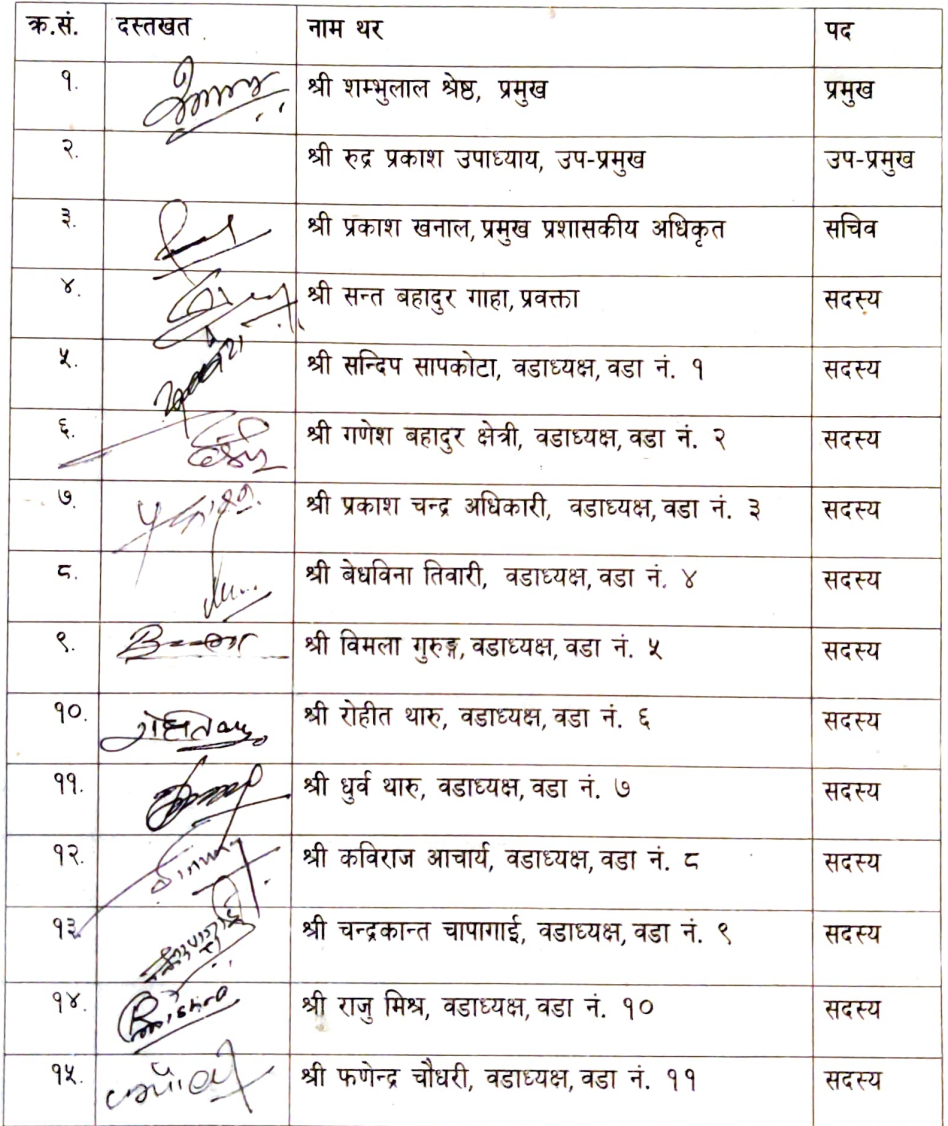 क्र.सं. दस्तखत नाम थर पद
१. श्री शम्भुलाल श्रेष्ठ, प्रमुख प्रमुख
२. श्री रुद्र प्रकाश उपाध्याय, उप-प्रमुख उप-प्रमुख
३. श्री प्रकाश खनाल, प्रमुख प्रशासकीय अधिकृत सचिव
४. श्री सन्त बहादुर गाहा, प्रवक्ता सदस्य
५. श्री सन्दिप सापकोटा, वडाध्यक्ष, वडा नं. १ सदस्य
६. श्री गणेश बहादुर क्षेत्री, वडाध्यक्ष, वडा नं. २ सदस्य
७. श्री प्रकाश चन्द्र अधिकारी, वडाध्यक्ष, वडा नं. ३ सदस्य
८. श्री बेधविना तिवारी, वडाध्यक्ष, वडा नं. ४ सदस्य
९. श्री विमला गुरुङ्ग, वडाध्यक्ष, वडा नं. ५ सदस्य
१०. श्री रोहीत थारु, वडाध्यक्ष, वडा नं. ६ सदस्य
११. श्री धुर्व थारु, वडाध्यक्ष, वडा नं. ७ सदस्य
१२. श्री कविराज आचार्य, वडाध्यक्ष, वडा नं. ८ सदस्य
१३. श्री चन्द्रकान्त चापागाई, वडाध्यक्ष, वडा नं. ९ सदस्य
१४. श्री राजु मिश्र, वडाध्यक्ष, वडा नं. १० सदस्य
१५. श्री फणेन्द्र चौधरी, वडाध्यक्ष, वडा नं. ११ सदस्य